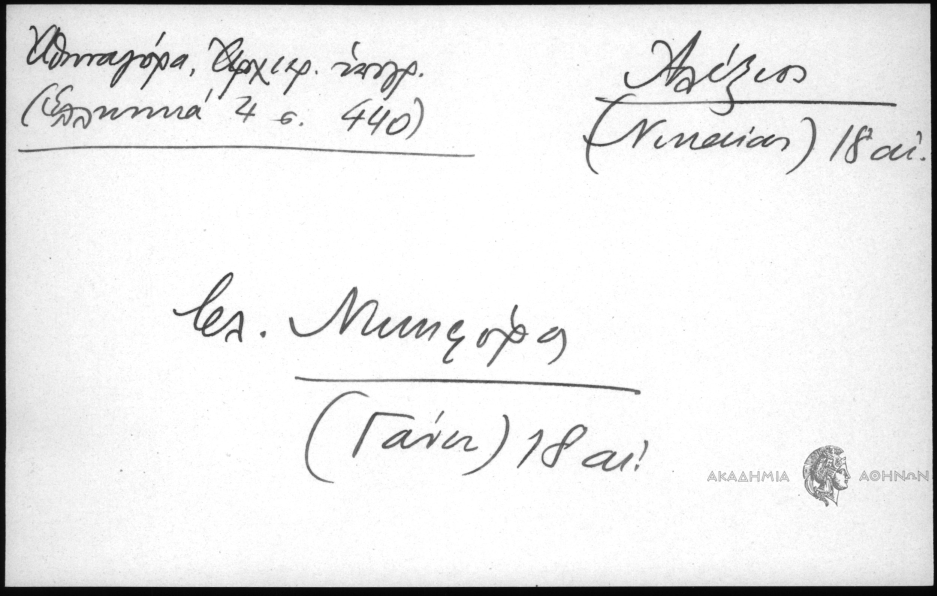 Ἀθηναγόρα, Ἀρχιερ. ὑπογρ.
(Ἑλληνικά 4 σ. 440)
Ἀλέξιος
(Νικαίας) 18 αἰ.
βλ. Νικηφόρος
(Γάνου) 18 αἰ.
ΑΚΑΔΗΜΙΑ ΑΘΗΝΩΝ